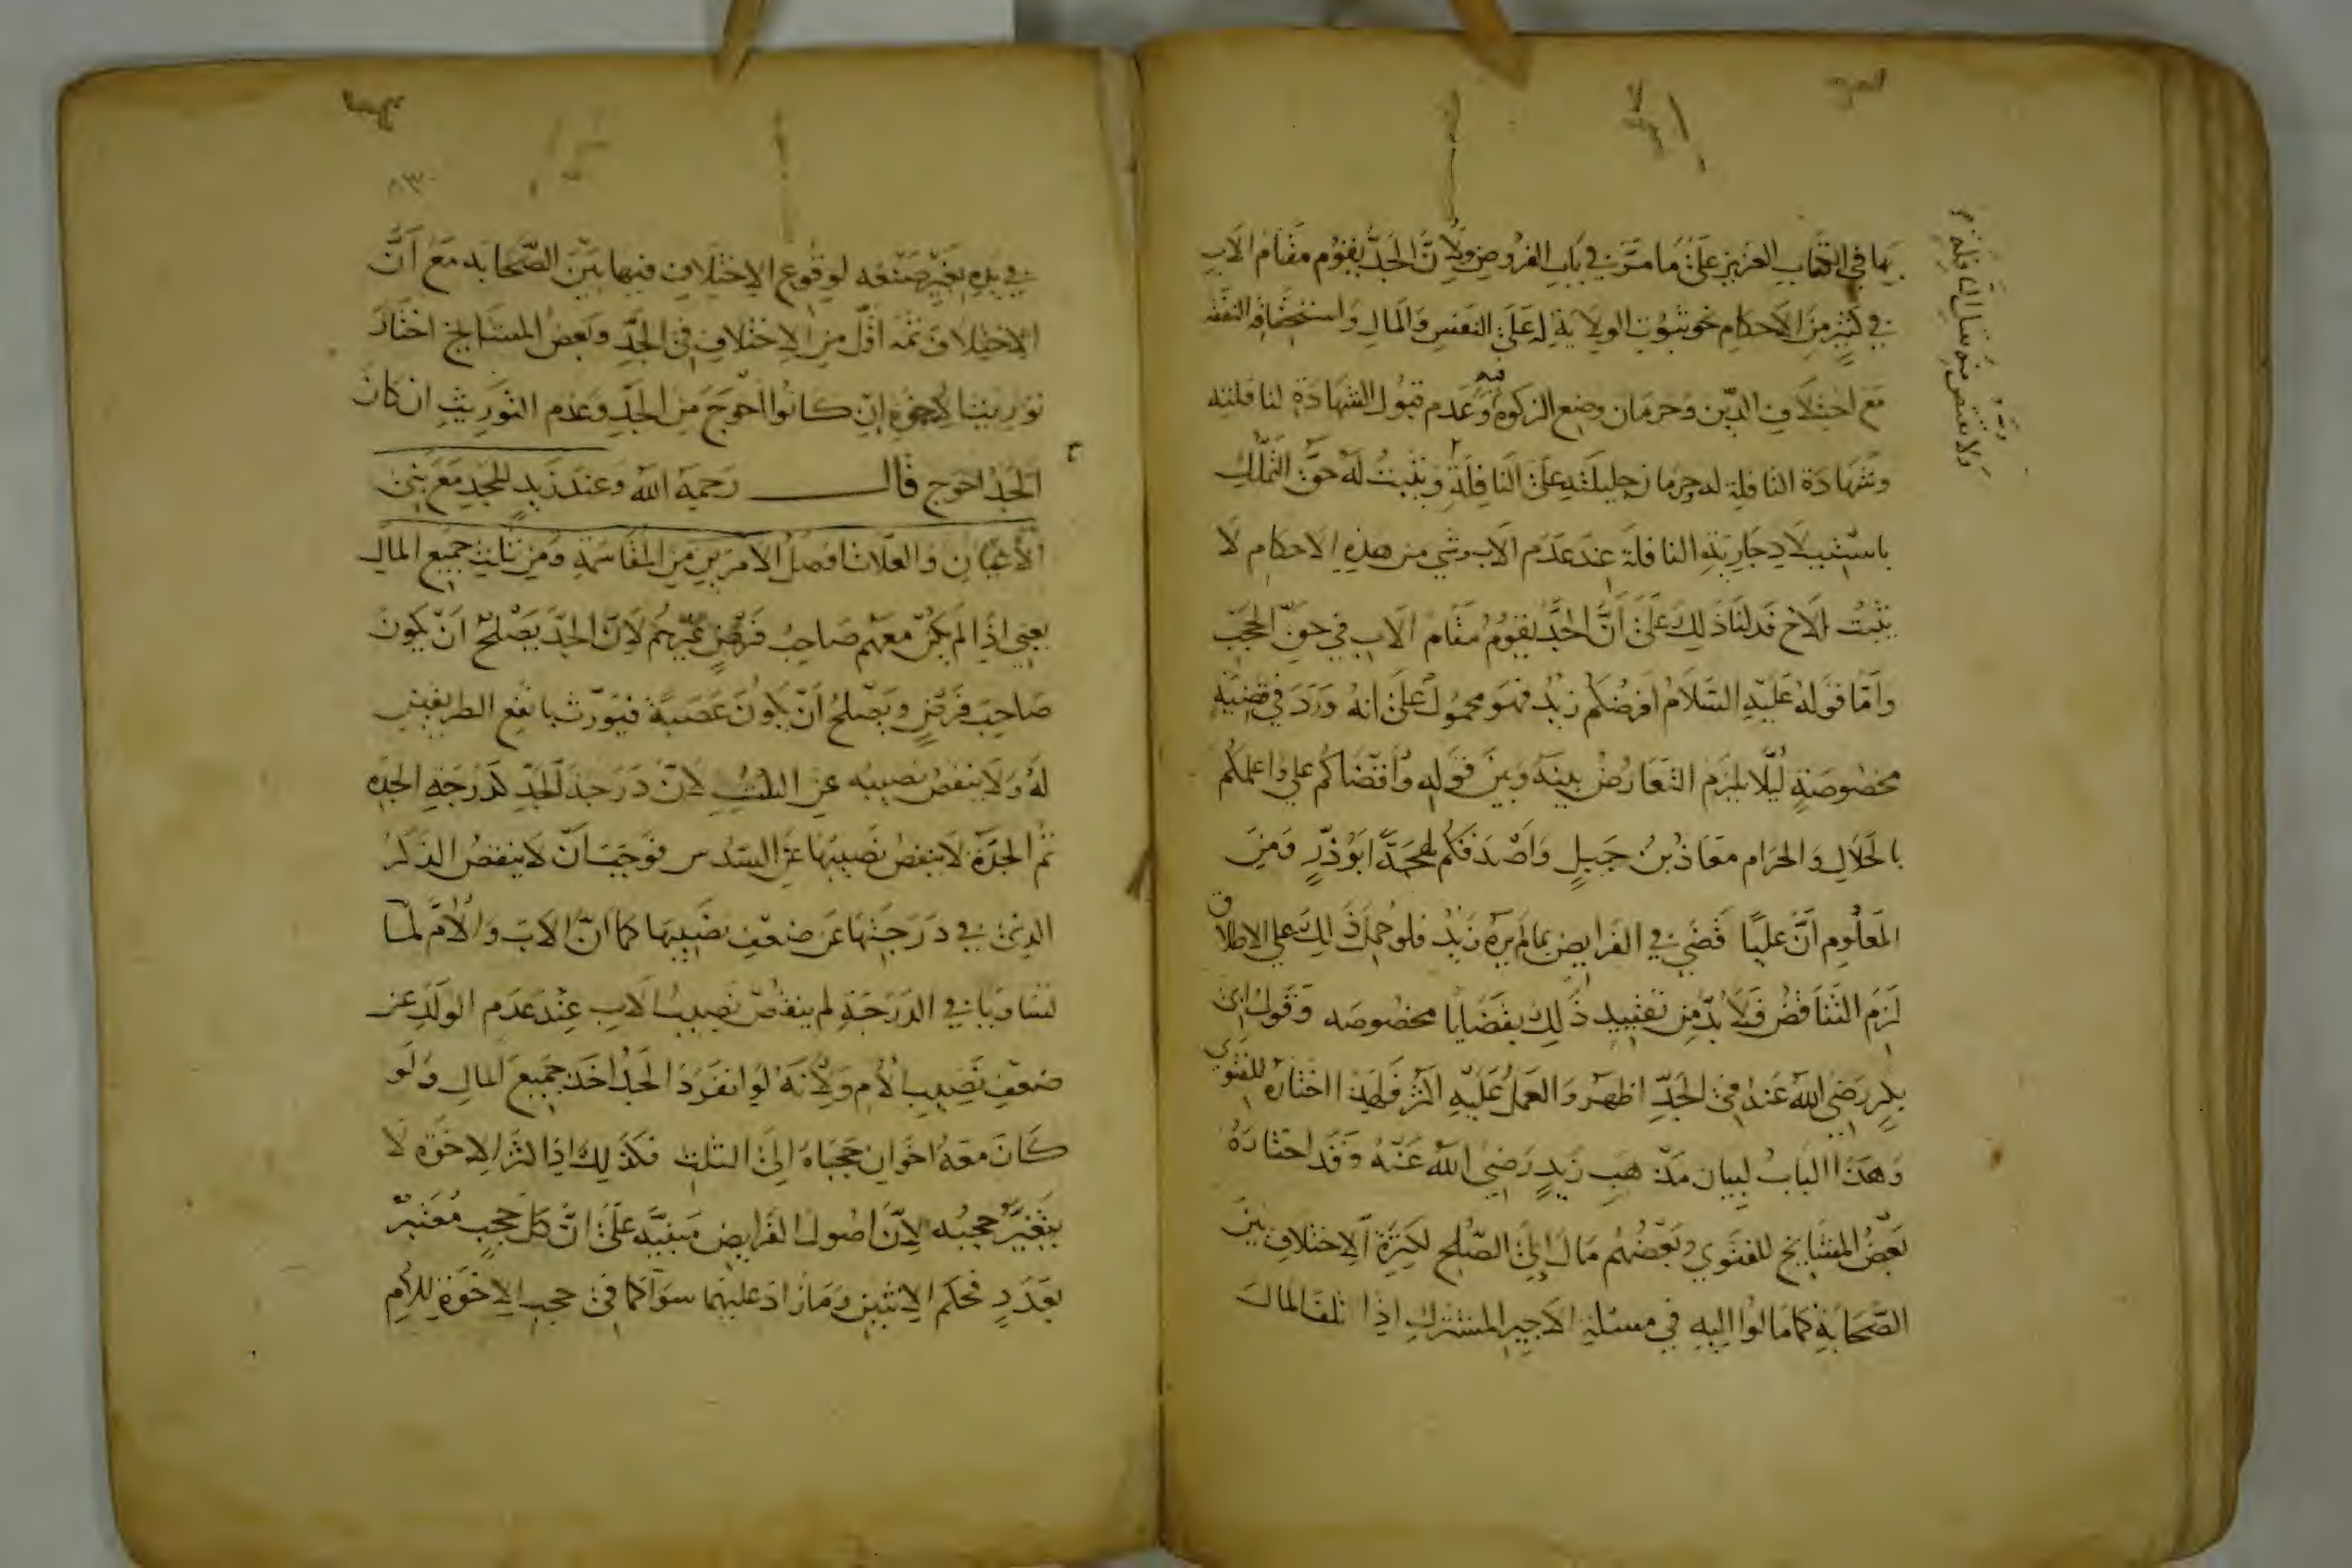 بها في الكتاب العزيز على ما مر في باب الفروض ولان الجد يقوم مقام الاب
في كثير من الاحكام نحو ثبوت الولاية له على النفس والمال واستحقاقه النفقة
مع اختلاف الدين وحرمان وضع الزكوة فيه وعدم قبول الشهادة لنافلته
وشهادة النافلة له وحرمان حليلته على النافلة ويثبت له حق التملك
باستيلاد جارية النافلة عند عدم الاب وشي من هذه الاحكام لا
يثبت للاخ فدلنا ذلك على أن الجد يقوم مقام الاب في حق الحجب
واما قوله عليه السلام افرضكم زيد فهو محمول على انه ورد في قضية
مخصوصة ليلا يلزم التعارض بينه وبين قوله واقضاكم علي واعلمكم
بالحلال والحرام معاذ بن جبل واصدقكم لهجة ابو ذر ومن
المعلوم أن عليا قضى في الفرايض بما لم يره زيد فلو حمل ذلك على الاطلاق
لزم التناقض فلا بد من تقييد ذلك بقضايا مخصوصه وقول ابى
بكر رضي الله عنه في الجد اظهر والعمل عليه اكثر فلهذا اختاره للفتوى
وهذا الباب لبيان مذهب زيد رضي الله عنه وقد اختاره
بعض المشايخ للفتوى وبعضهم مال إلى الصلح لكثرة الاختلاف بين
الصحابة كما مالوا اليه في مسئلة الاجير المشترك اذا تلف المال
في يده بغير صنعه لوقوع الاختلاف فيها بين الصحابه مع أن
الاختلاف ثمه اقل من الاختلاف في الجد وبعض المشايخ اختار
توريثنا الاخوة ان كانوا احوج من الجد وعدم التوريث ان كان
الجد احوج قال رحمه الله وعند زيد للجد مع بنى
الأعيان والعلات افضل الأمرين من المقاسمة ومن ثلث جميع المال
يعني اذا لم يكن معهم صاحب فرض غيرهم لان الجد يصلح ان يكون
صاحب فرض ويصلح أن يكون عصبة فيورث بانفع الطريقين
له ولا ينقص نصيبه عن الثلث لان درجة الجد كدرجة الجده
ثم الجدة لا ينقص نصيبها عن السدس فوجب أن لا ينقص الذكر
الذى في درجتها عن ضعف نصيبها كما ان الاب والأم لما
تساويا في الدرجة لم ينقص نصيب الاب عند عدم الولد عن
ضعف نصيب الأم ولأنه لو انفرد الجد اخذ جميع المال ولو
كان معه اخوان حجباه الى الثلث فكذلك اذا كثر الاخوة لا
يتغير حجبه لان اصول الفرايض مبنية على ان كل حجب معتبر
بعدد فحكم الاثنين وما زاد عليهما سواء كما في حجب الاخوة للأم